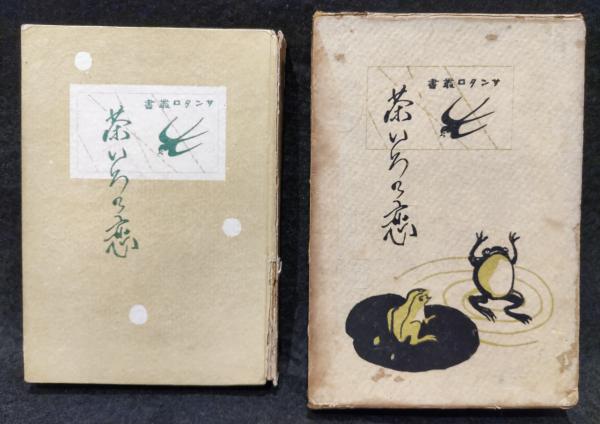 サンタロ叢書
茶いろの恋
サンタロ叢書
茶いろの恋